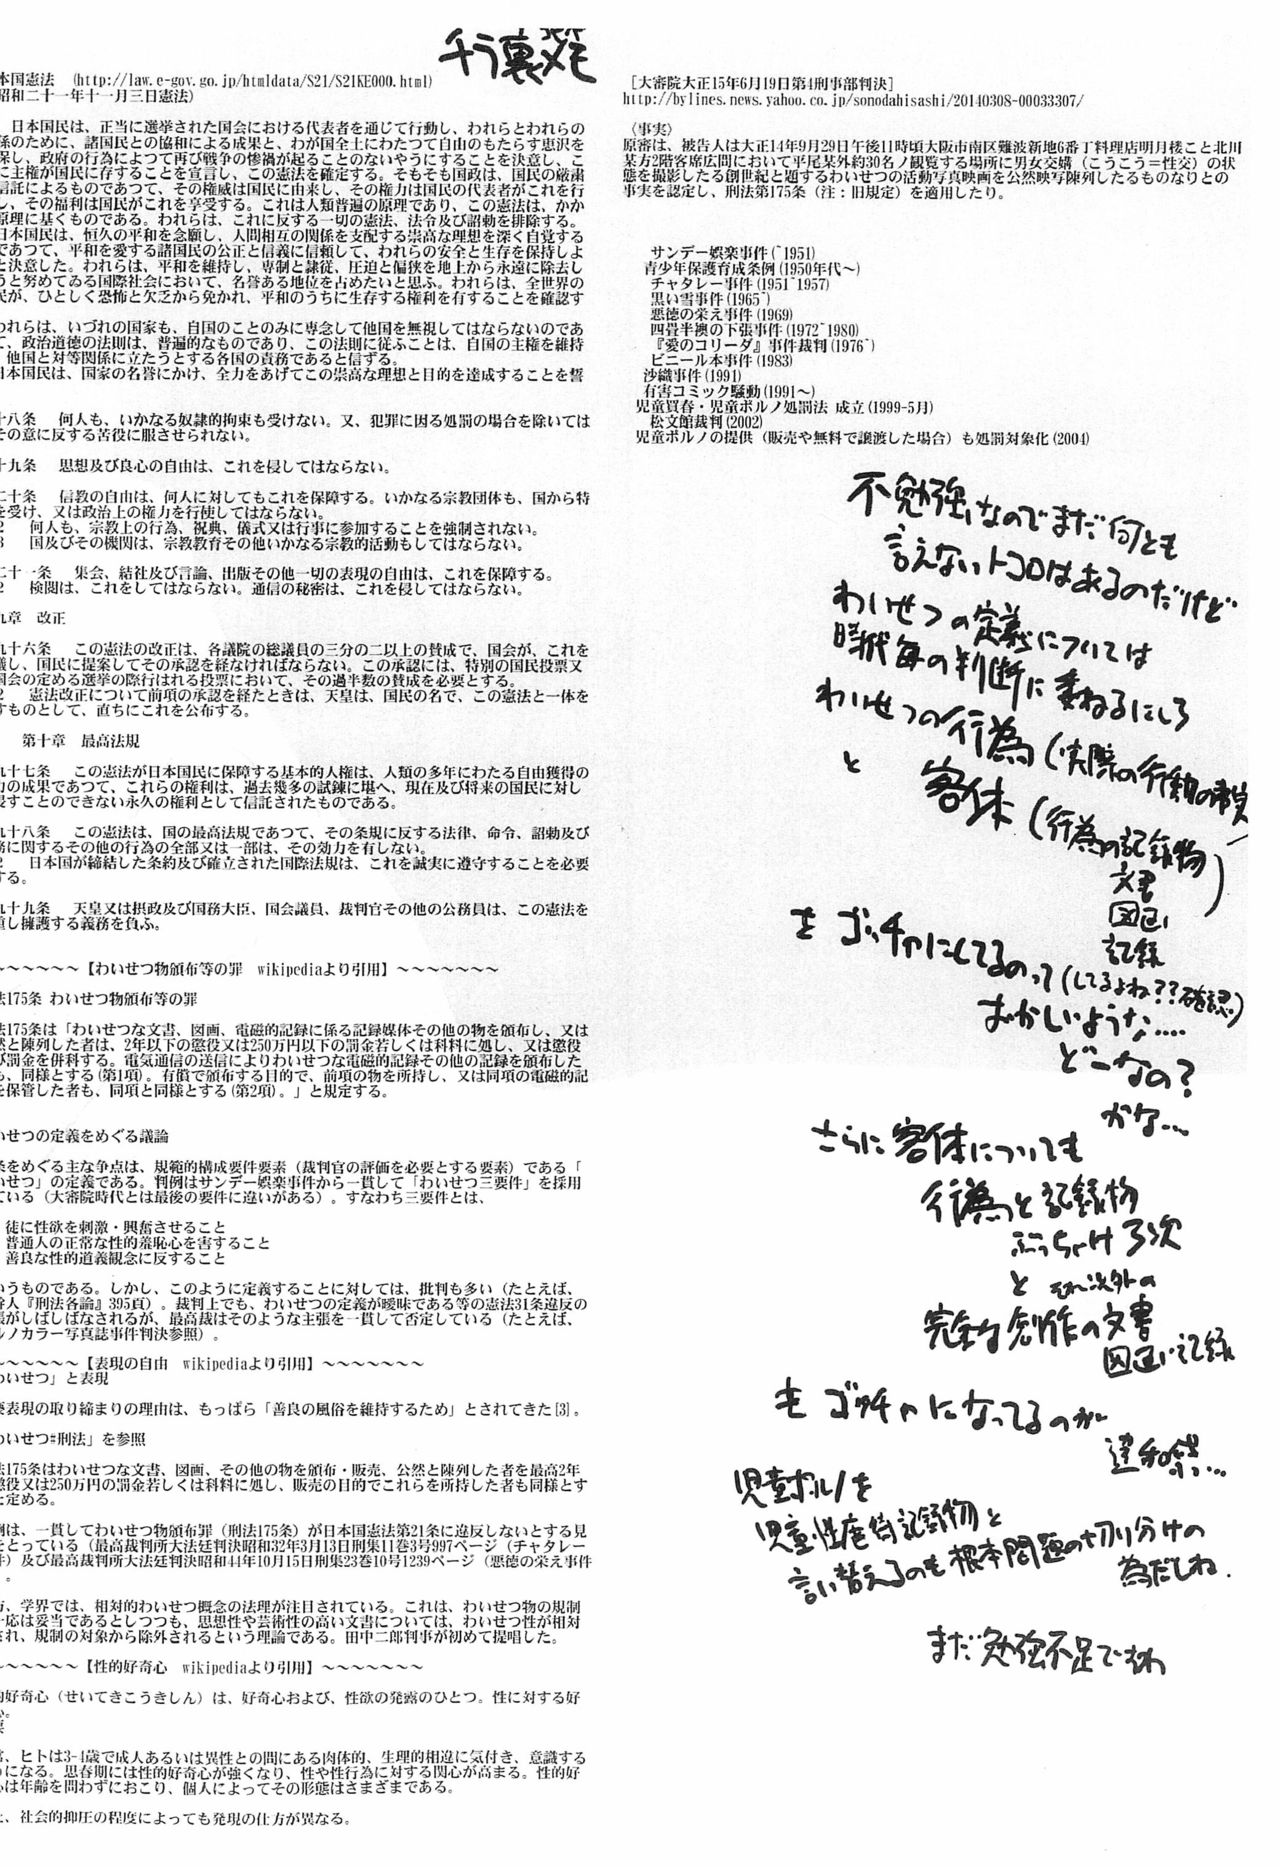 チラ裏メモ
本国憲法　(http://law.e-gov.go.jp/htmldata/S21/S21KE000.html)
昭和二十一年十一月三日憲法)
日本国民は、正当に選挙された国会における代表者を通じて行動し、われらとわれらの
孫のために、諸国民との協和による成果と、わが国全土にわたつて自由のもたらす恵沢を
保し、政府の行為によつて再び戦争の惨禍が起ることのないやうにすることを決意し、こ
に主権が国民に存することを宣言し、この憲法を確定する。そもそも国政は、国民の厳粛
信託によるものであつて、その権威は国民に由来し、その権力は国民の代表者がこれを行
し、その福利は国民がこれを享受する。これは人類普遍の原理であり、この憲法は、かか
原理に基くものである。われらは、これに反する一切の憲法、法令及び詔勅を排除する。
日本国民は、恒久の平和を念願し、人間相互の関係を支配する崇高な理想を深く自覚する
であつて、平和を愛する諸国民の公正と信義に信頼して、われらの安全と生存を保持しよ
と決意した。われらは、平和を維持し、専制と隷従、圧迫と偏狭を地上から永遠に除去し
うと努めてゐる国際社会において、名誉ある地位を占めたいと思ふ。われらは、全世界の
民が、ひとしく恐怖と欠乏から免かれ、平和のうちに生存する権利を有することを確認す
われらは、いづれの国家も、自国のことのみに専念して他国を無視してはならないのであ
て、政治道徳の法則は、普遍的なものであり、この法則に従ふことは、自国の主権を維持
、他国と対等関係に立たうとする各国の責務であると信ずる。
日本国民は、国家の名誉にかけ、全力をあげてこの崇高な理想と目的を達成することを誓
十八条　何人も、いかなる奴隷的拘束も受けない。又、犯罪に因る処罰の場合を除いては
その意に反する苦役に服させられない。
十九条　思想及び良心の自由は、これを侵してはならない。
二十条　信教の自由は、何人に対してもこれを保障する。いかなる宗教団体も、国から特
を受け、又は政治上の権力を行使してはならない。
2　何人も、宗教上の行為、祝典、儀式又は行事に参加することを強制されない。
3　国及びその機関は、宗教教育その他いかなる宗教的活動もしてはならない。
二十一条　集会、結社及び言論、出版その他一切の表現の自由は、これを保障する。
2　検閲は、これをしてはならない。通信の秘密は、これを侵してはならない。
九章　改正
九十六条　この憲法の改正は、各議院の総議員の三分の二以上の賛成で、国会が、これを
議し、国民に提案してその承認を経なければならない。この承認には、特別の国民投票又
国会の定める選挙の際行はれる投票において、その過半数の賛成を必要とする。
2　憲法改正について前項の承認を経たときは、天皇は、国民の名で、この憲法と一体を
すものとして、直ちにこれを公布する。
第十章　最高法規
九十七条　この憲法が日本国民に保障する基本的人権は、人類の多年にわたる自由獲得の
力の成果であつて、これらの権利は、過去幾多の試錬に堪へ、現在及び将来の国民に対し
侵すことのできない永久の権利として信託されたものである。
九十八条　この憲法は、国の最高法規であつて、その条規に反する法律、命令、詔勅及び
務に関するその他の行為の全部又は一部は、その効力を有しない。
2　日本国が締結した条約及び確立された国際法規は、これを誠実に遵守することを必要
する。
九十九条　天皇又は摂政及び国務大臣、国会議員、裁判官その他の公務員は、この憲法を
重し擁護する義務を負ふ。
～～～～～～【わいせつ物頒布等の罪　wikipediaより引用】～～～～～～～
法175条 わいせつ物頒布等の罪
法175条は「わいせつな文書、図画、電磁的記録に係る記録媒体その他の物を頒布し、又は
然と陳列した者は、2年以下の懲役又は250万円以下の罰金若しくは科料に処し、又は懲役
び罰金を併科する。電気通信の送信によりわいせつな電磁的記録その他の記録を頒布した
も、同様とする(第1項)。有償で頒布する目的で、前項の物を所持し、又は同項の電磁的記
を保管した者も、同項と同様とする(第2項)。」と規定する。
いせつの定義をめぐる議論
条をめぐる主な争点は、規範的構成要件要素（裁判官の評価を必要とする要素）である「
いせつ」の定義である。判例はサンデー娯楽事件から一貫して「わいせつ三要件」を採用
ている（大審院時代とは最後の要件に違いがある）。すなわち三要件とは、
徒に性欲を刺激・興奮させること
普通人の正常な性的羞恥心を害すること
善良な性的道義観念に反すること
いうものである。しかし、このように定義することに対しては、批判も多い（たとえば、
幹人『刑法各論』395頁）。裁判上でも、わいせつの定義が曖昧である等の憲法31条違反の
張がしばしばなされるが、最高裁はそのような主張を一貫して否定している（たとえば、
ルノカラー写真誌事件判決参照）。
～～～～～～【表現の自由　wikipediaより引用】～～～～～～～
わいせつ」と表現
褻表現の取り締まりの理由は、もっぱら「善良の風俗を維持するため」とされてきた[3]。
わいせつ#刑法」を参照
法175条はわいせつな文書、図画、その他の物を頒布・販売、公然と陳列した者を最高2年
懲役又は250万円の罰金若しくは科料に処し、販売の目的でこれらを所持した者も同様とす
と定める。
例は、一貫してわいせつ物頒布罪（刑法175条）が日本国憲法第21条に違反しないとする見
をとっている（最高裁判所大法廷判決昭和32年3月13日刑集11巻3号997ページ（チャタレー
件）及び最高裁判所大法廷判決昭和44年10月15日刑集23巻10号1239ページ（悪徳の栄え事件
。
方、学界では、相対的わいせつ概念の法理が注目されている。これは、わいせつ物の規制
一応は妥当であるとしつつも、思想性や芸術性の高い文書については、わいせつ性が相対
され、規制の対象から除外されるという理論である。田中二郎判事が初めて提唱した。
～～～～～～【性的好奇心　wikipediaより引用】～～～～～～～
的好奇心（せいてきこうきしん）は、好奇心および、性欲の発露のひとつ。性に対する好
心。
要
常、ヒトは3-4歳で成人あるいは異性との間にある肉体的、生理的相違に気付き、意識する
うになる。思春期には性的好奇心が強くなり、性や性行為に対する関心が高まる。性的好
心は年齢を問わずにおこり、個人によってその形態はさまざまである。
た、社会的抑圧の程度によっても発現の仕方が異なる。
[大審院大正15年6月19日第4刑事部判決]
http://bylines.news.yahoo.co.jp/sonodahisashi/20140308-00033307/
〈事実〉
原審は、被告人は大正14年9月29日午後11時頃大阪市南区難波新地6番丁料理店明月楼こと北川
某方2階客席広間において平尾某外約30名ノ観覧する場所に男女交媾（こうこう＝性交）の状
態を撮影したる創世紀と題するわいせつの活動写真映画を公然映写陳列したるものなりとの
事実を認定し、刑法第175条（注：旧規定）を適用したり。
サンデー娯楽事件(~1951)
青少年保護育成条例(1950年代～)
チャタレー事件(1951~1957)
黒い雪事件(1965~)
悪徳の栄え事件(1969)
四畳半襖の下張事件(1972~1980)
『愛のコリーダ』事件裁判(1976~)
ビニール本事件(1983)
沙織事件(1991)
有害コミック騒動(1991～)
児童買春・児童ポルノ処罰法 成立(1999-5月)
松文館裁判(2002)
児童ポルノの提供（販売や無料で譲渡した場合）も処罰対象化(2004)
不勉強なのでまだ何とも
言えないトコロはあるのだけど
わいせつの定義については
時代毎の判断に委ねるにしろ
わいせつの行為(実際の行動の事実
と 客体(行為の記録物
文書
図画
記録)
を ゴッチャにしてるのって(してるよね??確認)
おかしいような....
どーなの?
かな...
さらに客体についても
行為と記録物
ぶっちゃけ3次
と それ以外の
完全な創作の文書
図画記録
もゴッチャになってるのが
違和感...
児童ポルノを
児童性虐待記録物と
言い替えるのも根本問題の切り分けの
為だしね.
まだ勉強不足ですわ